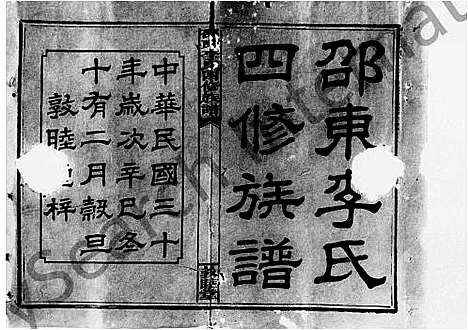 邵東李氏
四修族譜
中華民國三十
年歲次辛巳冬
十有二月穀旦
敦睦 梓